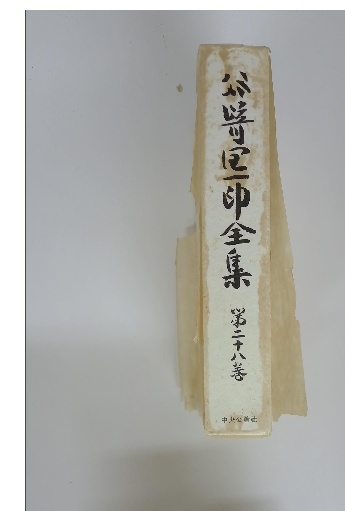 谷崎潤一郎全集
第二十八巻
中央公論社